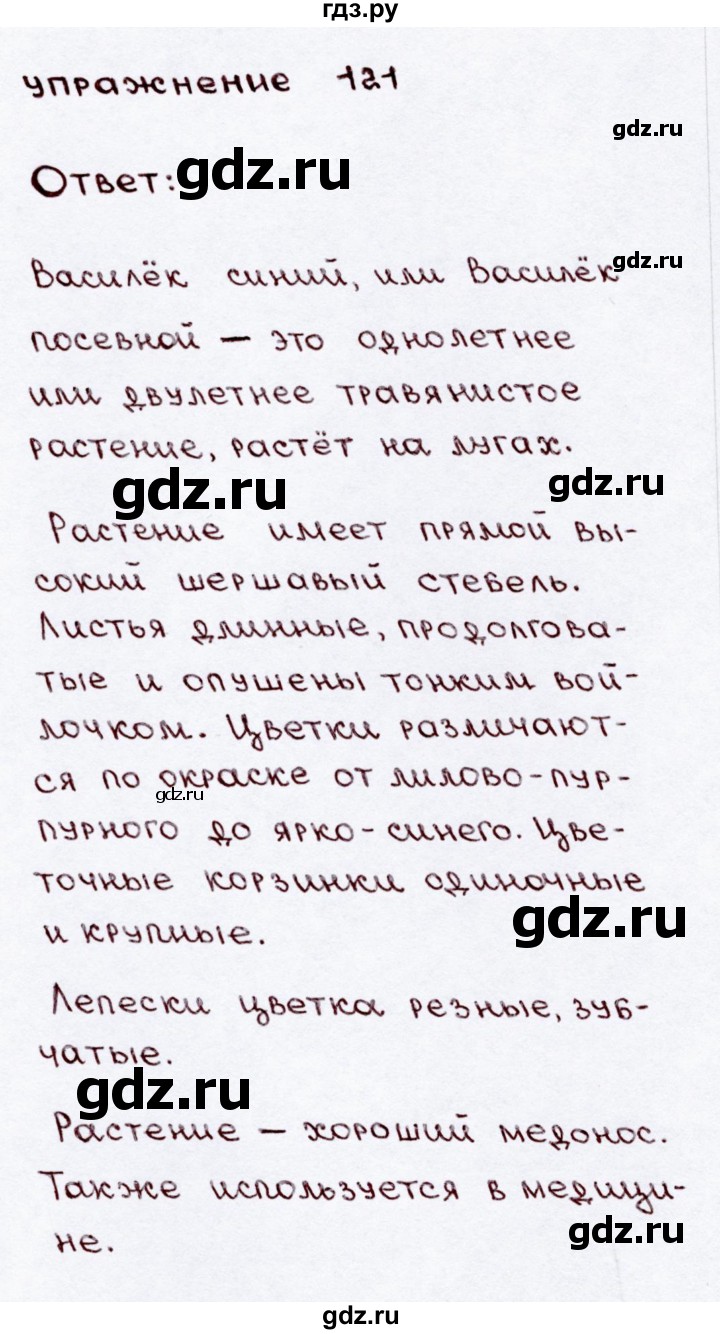 гдз.ру
упражнение 121
gdz.ru
Ответ:
gdz.ru
Василёк синий, или Василёк
gdz.ru
посевной — это однолетнее
или двулетнее травянистое
растение, растёт на лугах.
gdz.ru
gdz.ru
Растение имеет прямой вы-
сокий шершавый стебель.
Листья длинные, продолгова-
тые и опушены тонким вой-
лочком. Цветки различают-
ся по окраске от лилово-пур-
gdz.ru
пурного до ярко-синего. Цве-
точные корзинки одиночные
gdz.ru
и крупные.
Лепески цветка резные, зуб-
чатые.
gdz.ru
Растение — хороший медонос.
Также используется в медици-
gdz.ru
не.
gdz.ru